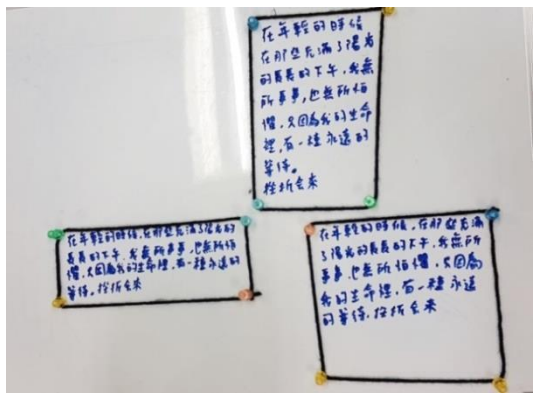 在年輕的時候
在那些充滿了陽光
的長長的下午，我無
所事事，也無所怕
懼，只因為我的生命
裡，有一種永遠的
等待。
挫折會來
在年輕的時候，在那些充滿了陽光的
長長的下午，我無所事事，也無所怕
懼，只因為我的生命裡，有一種永遠的
等待，挫折會來
在年輕的時候，在那些充滿
了陽光的長長的下午，我無所
事事，也無所怕懼，只因為
我的生命裡，有一種永遠
的等待，挫折會來